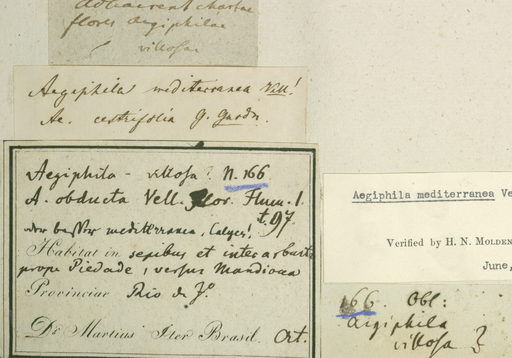 adhaerent chartae
flores Aegiphilae
villosae
Aegiphila mediterranea Vell!
Ae. cestrifolia G. Gardn.
Aegiphila - villosa? N. 166
A. obducta Vell. Flor. Flum. I.
t. 97
oder besser mediterranea, Calyce!
Habitat in sepibus et inter arbusta
prope Piedade, versus Mandiocca
Provinciae Rio de J.º
Dr Martius Iter Brasil. Oct.
Aegiphila mediterranea Ve
Verified by H. N. MOLDEN
June,
166. Obl:
Aegiphila
villosa ?